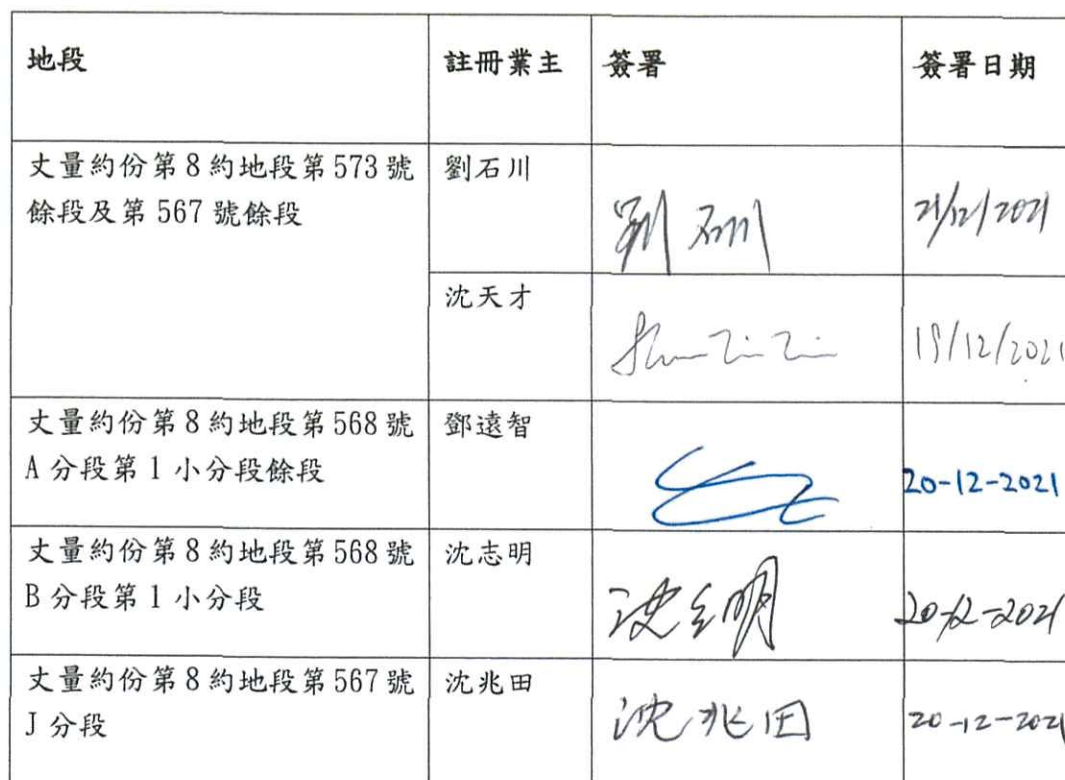 地段 註冊業主 簽署 簽署日期
丈量約份第8約地段第573號 劉石川
餘段及第567號餘段
劉石川 21/12/2021
沈天才
19/12/2021
丈量約份第8約地段第568號 鄧遠智
A分段第1小分段餘段
20-12-2021
丈量約份第8約地段第568號 沈志明
B分段第1小分段
沈志明 20-12-2021
丈量約份第8約地段第567號 沈兆田
J分段
沈兆田 20-12-2021